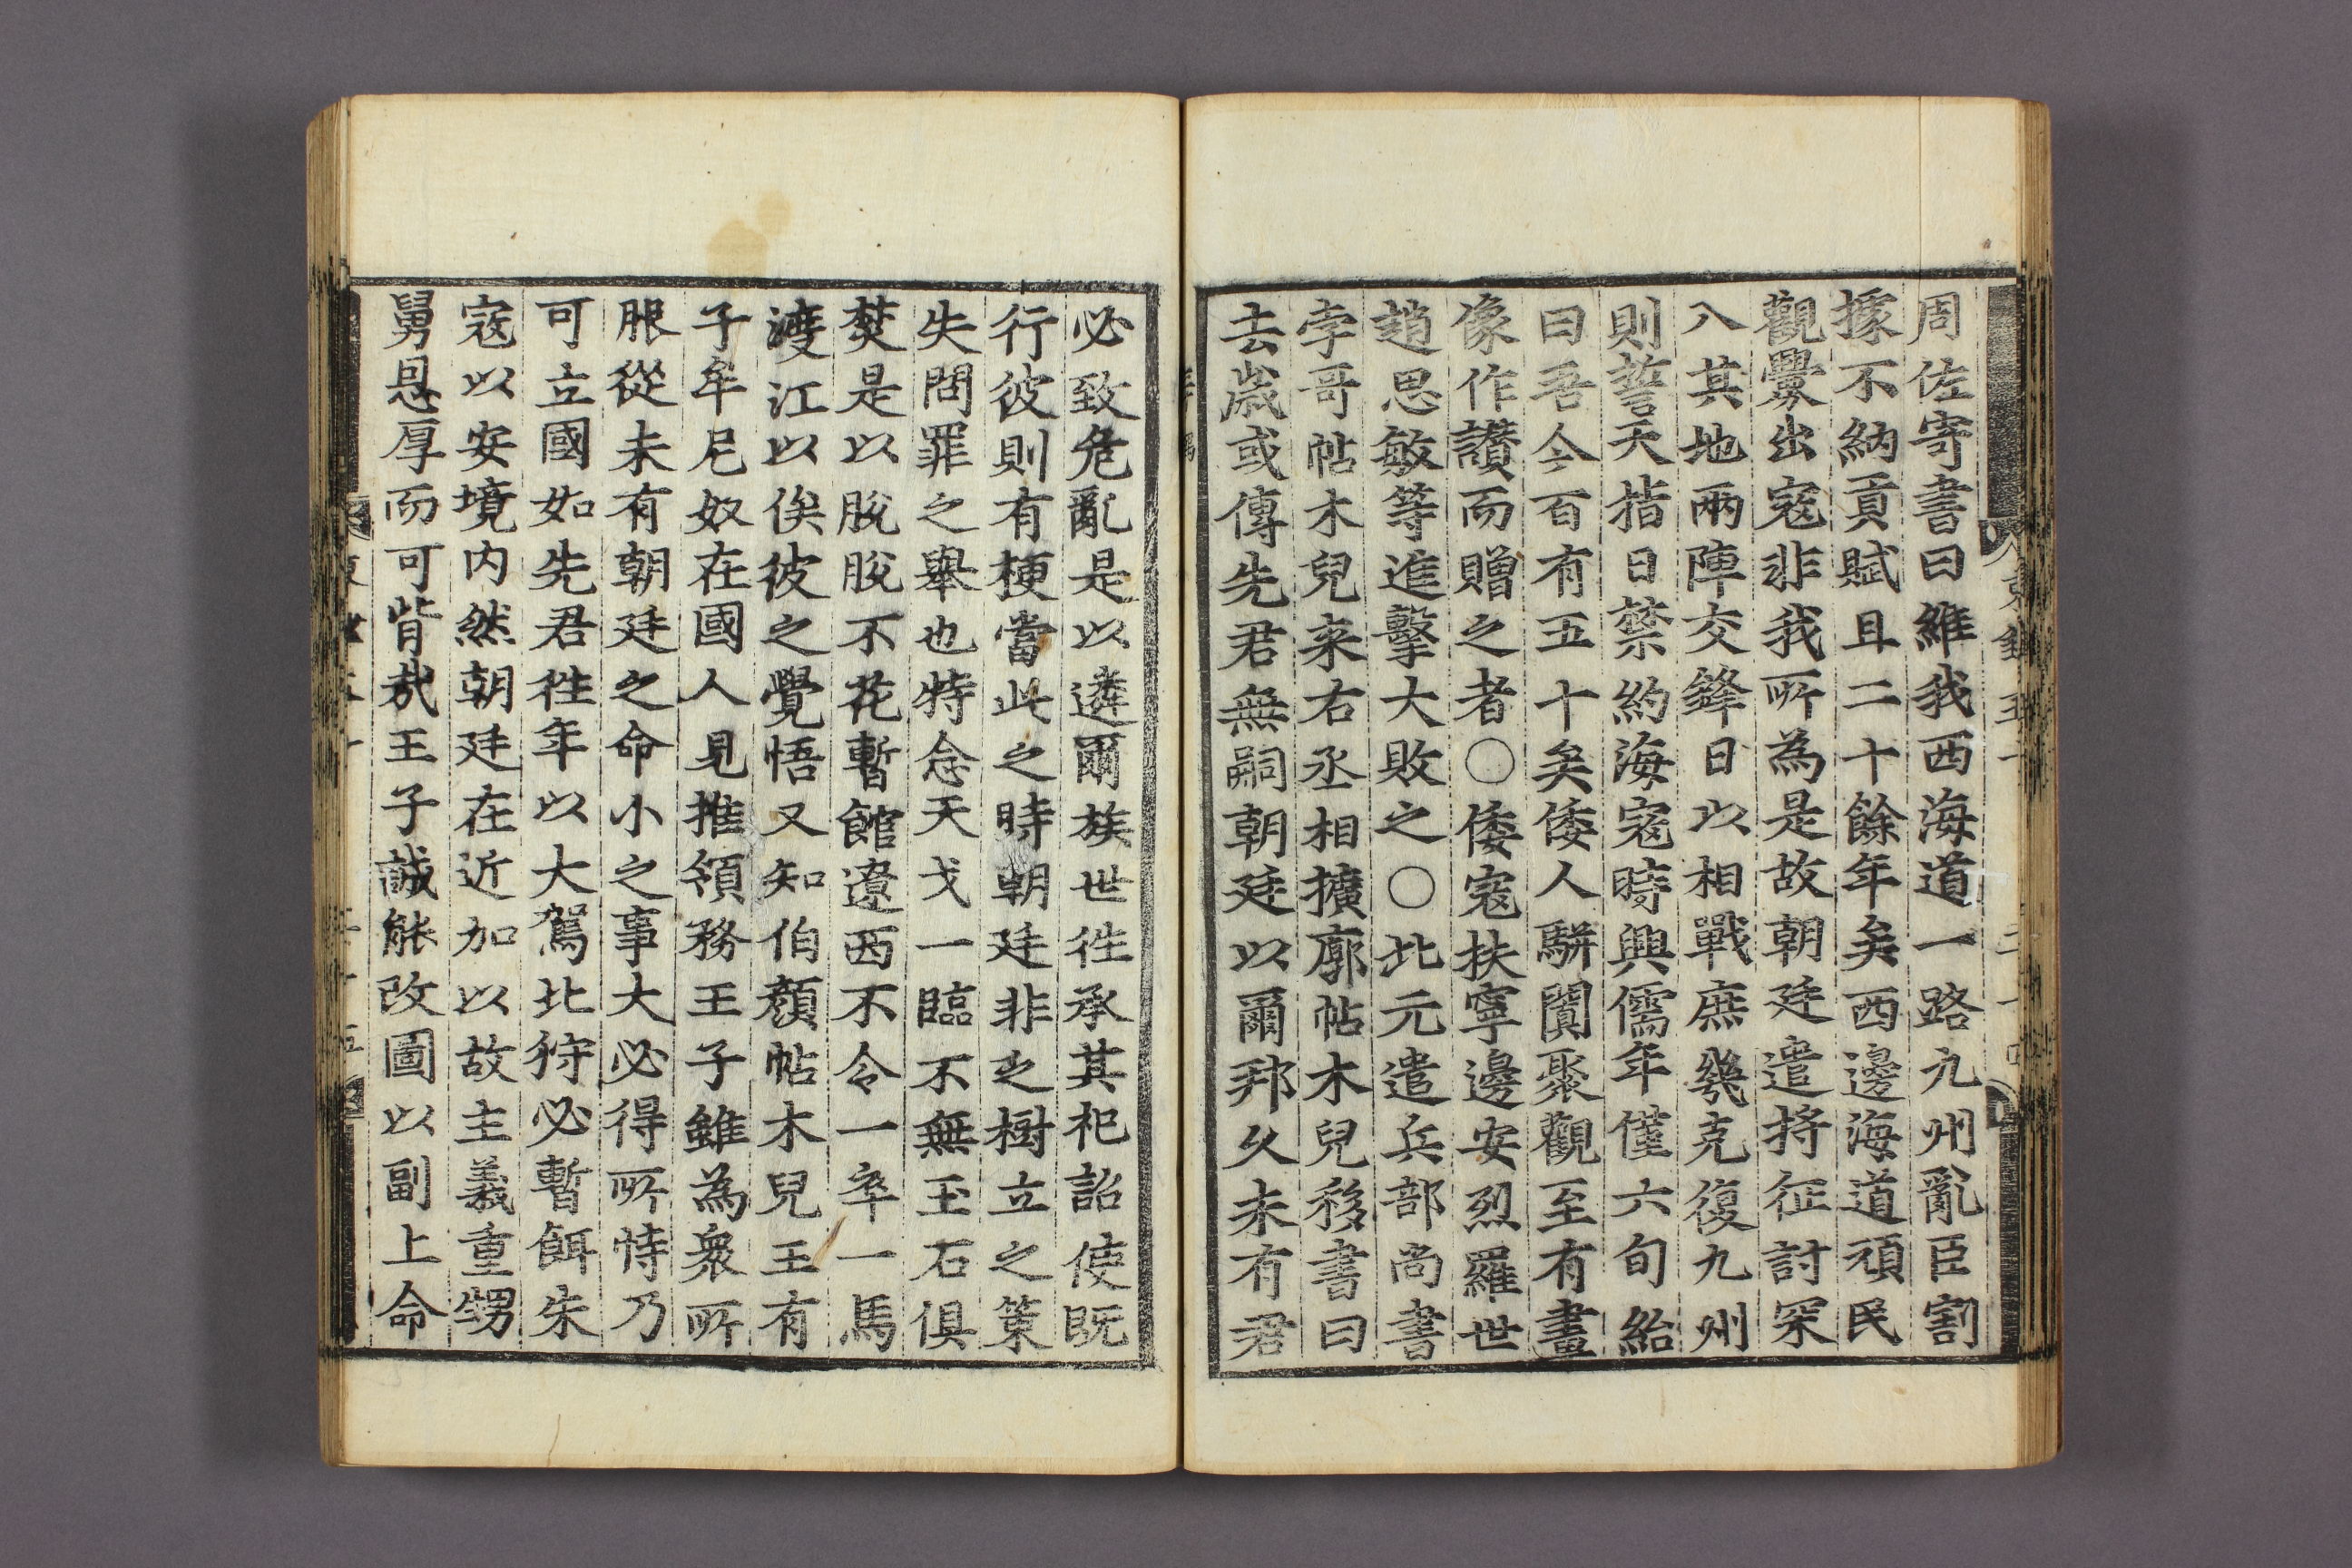 周佐寄書曰維我西海道一路九州亂臣割
據不納貢賦且二十餘年矣西邊海道頑民
觀釁出寇非我所為是故朝廷遣將征討深
入其地兩陣交鋒日以相戰庶幾克復九州
則誓天指日禁約海寇時興儒年僅六旬紿
曰吾今百有五十矣倭人駢闐聚觀至有畫
像作讃而贈之者○倭寇扶寧邊安烈羅世
趙思敏等進擊大敗之○北元遣兵部尚書
孛哥帖木兒来右丞相擴廓帖木兒移書曰
去歲或傳先君無嗣朝廷以爾邦久未有君
必致危亂是以遴爾族世徃承其祀詔使既
行彼則有梗當此之時朝廷非乏樹立之策
失問罪之舉也特念天戈一臨不無玉石俱
焚是以脫脫不花暫館遼西不令一卒一馬
渡江以俟彼之覺悟又知伯顏帖木兒王有
子牟尼奴在國人見推領務王子雖為衆所
服從未有朝廷之命小之事大必得所恃乃
可立國如先君徃年以大駕北狩必暫餌朱
寇以安境内然朝廷在近加以故主義重甥
舅恩厚而可背㢤王子誠能改圖以副上命